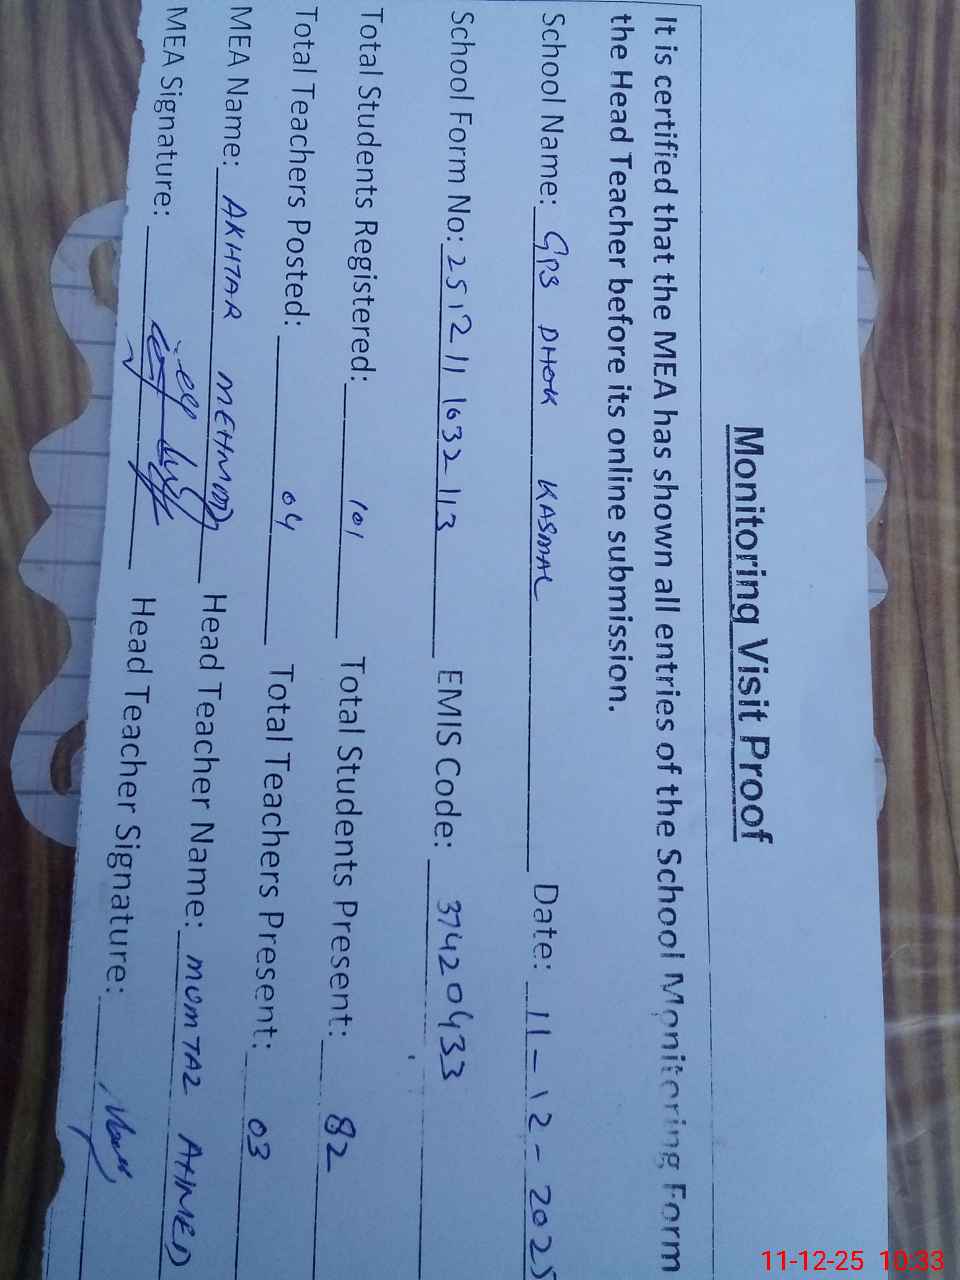 Monitoring Visit Proof
It is certified that the MEA has shown all entries of the School Monitoring Form
the Head Teacher before its online submission.
School Name: GPS DHOK KASMAL Date: 11-12-2025
School Form No: 2512111032113 EMIS Code: 37420433
Total Students Registered: 101 Total Students Present: 82
Total Teachers Posted: 04 Total Teachers Present: 03
MEA Name: AKHTAR MEHMOOD Head Teacher Name: MUMTAZ AHMED
MEA Signature: Head Teacher Signature:
11-12-25 10:33